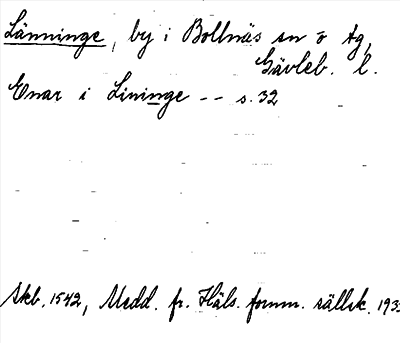 Länninge, by i Bollnäs sn o tg,
Gävleb. l.
Enar i Lininge -- s. 32
Skb. 1542, Medd. fr. Häls. fornm. sällsk. 193